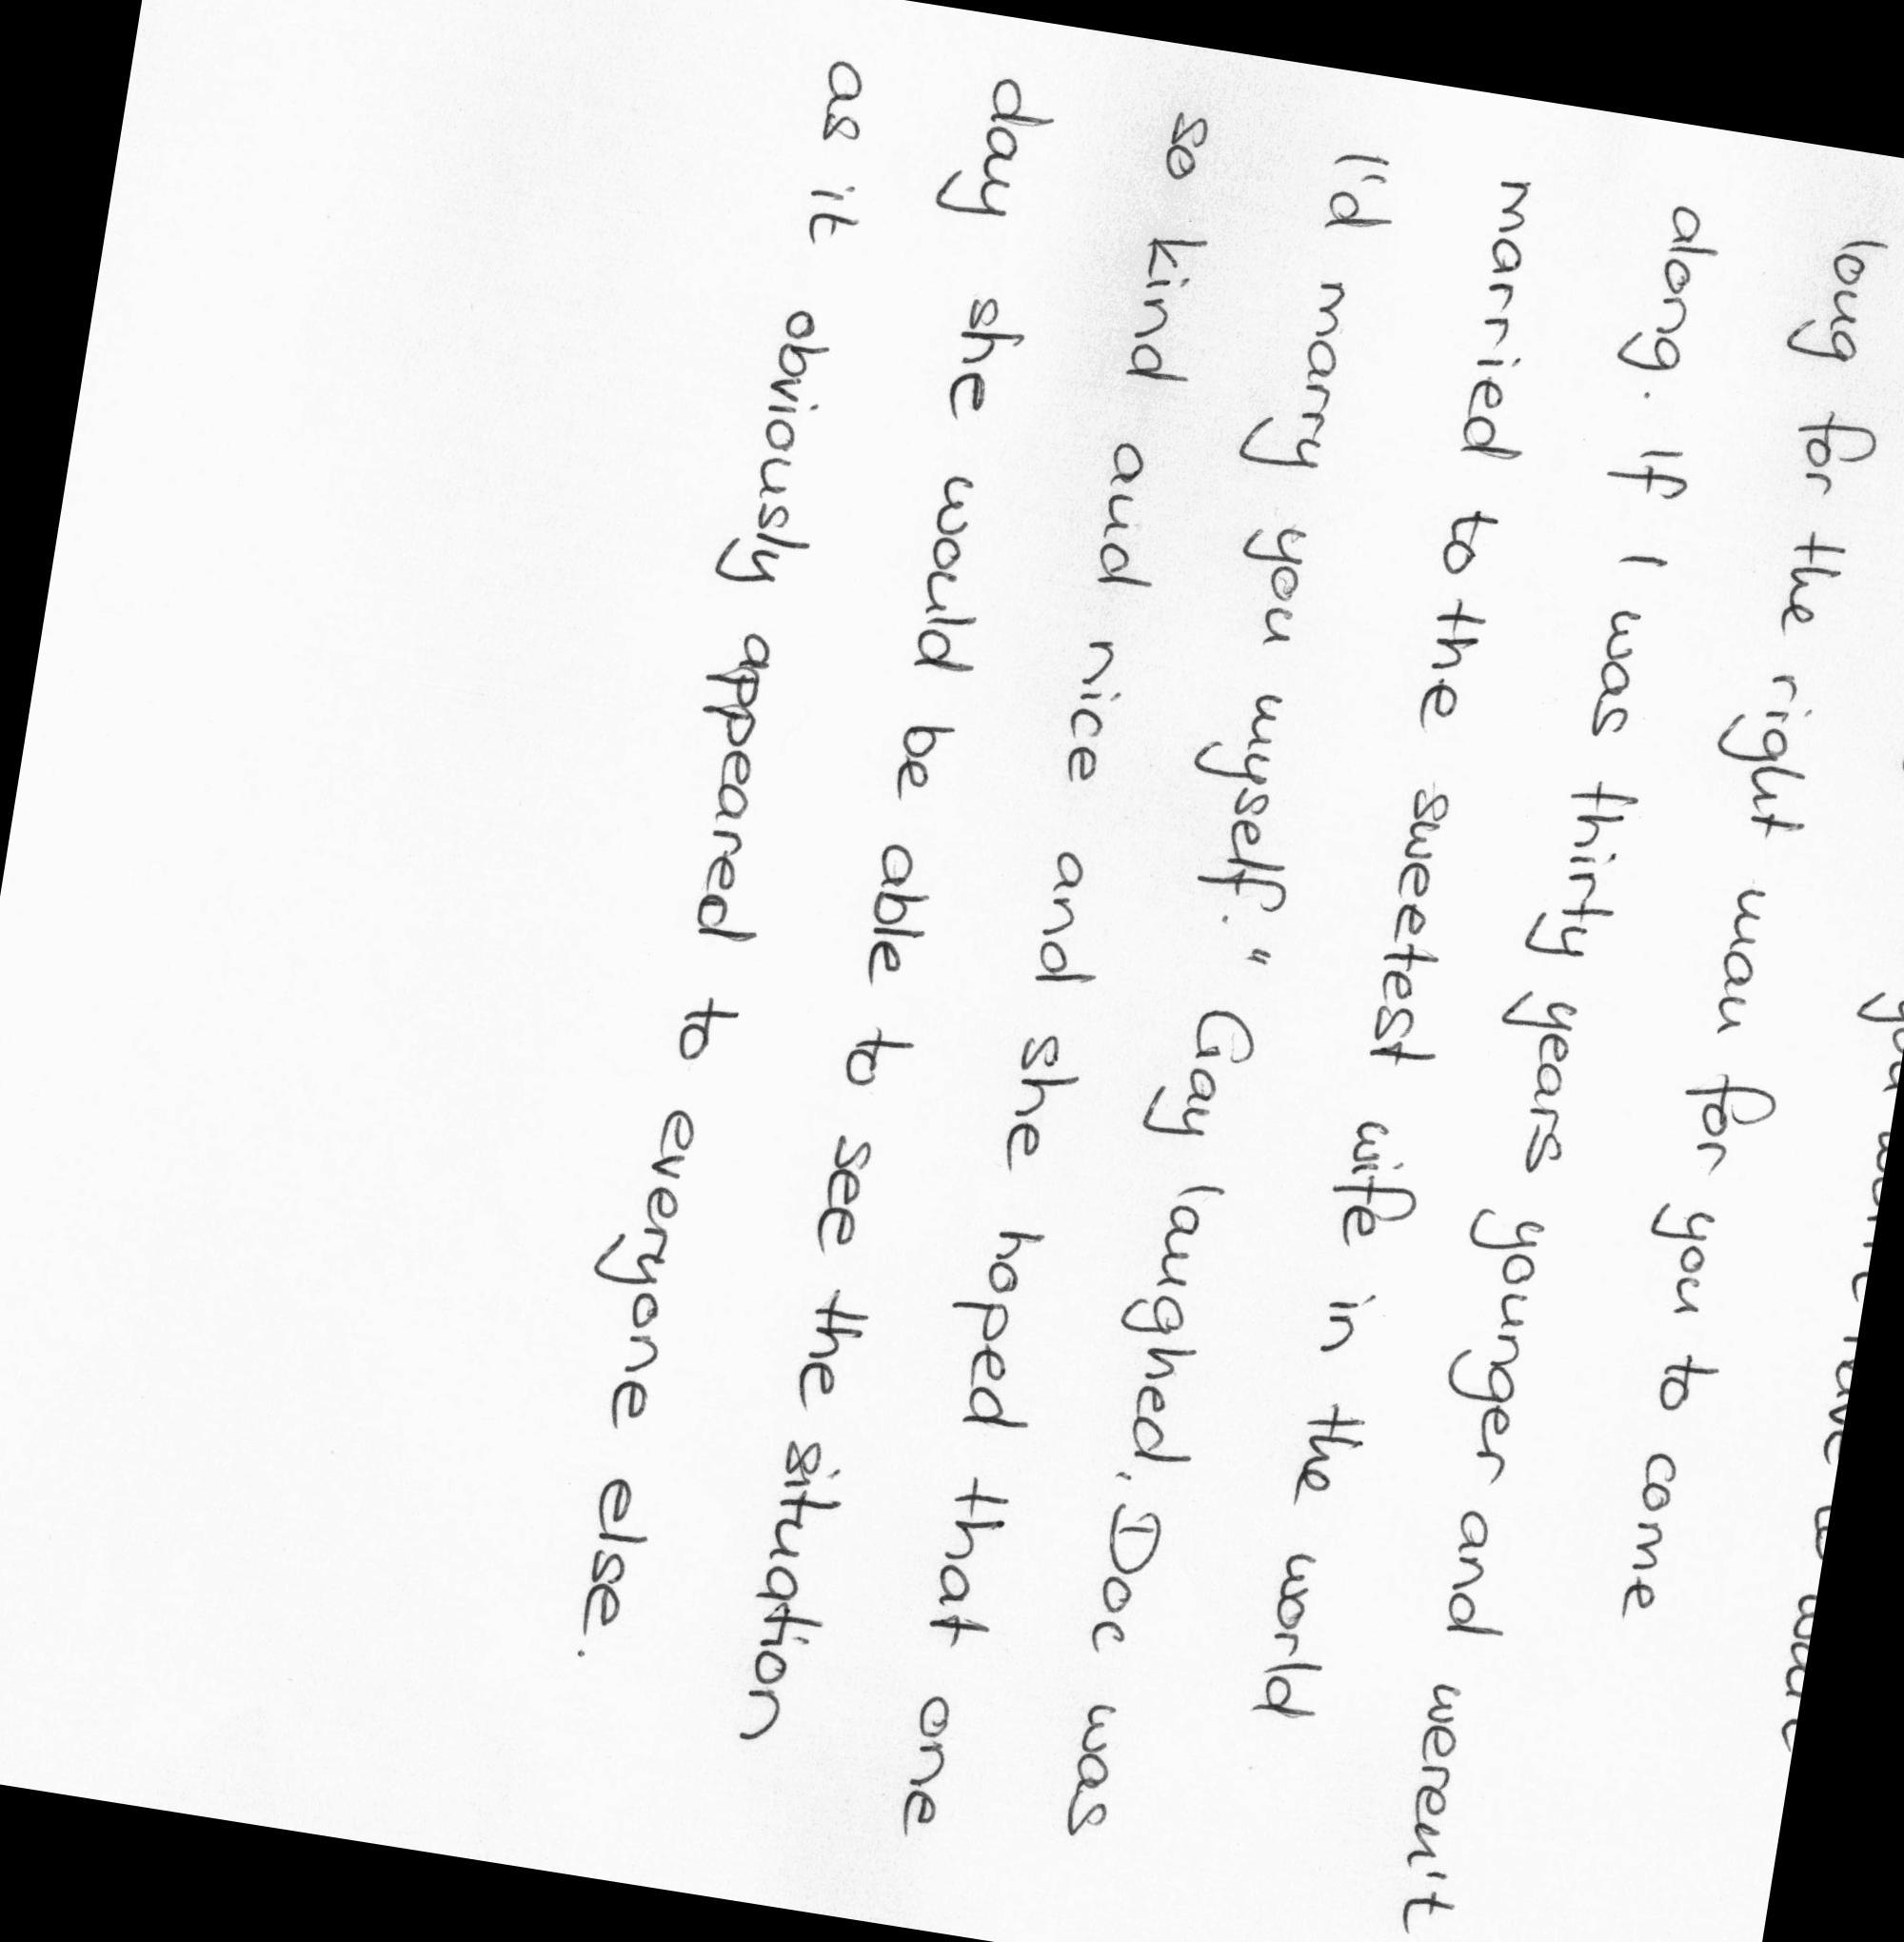 you won't have to wait
long for the right man for you to come
along. If I was thirty years younger and weren't
married to the sweetest wife in the world
I'd marry you myself." Gay laughed. Doc was
so kind and nice and she hoped that one
day she would be able to see the situation
as it obviously appeared to everyone else.